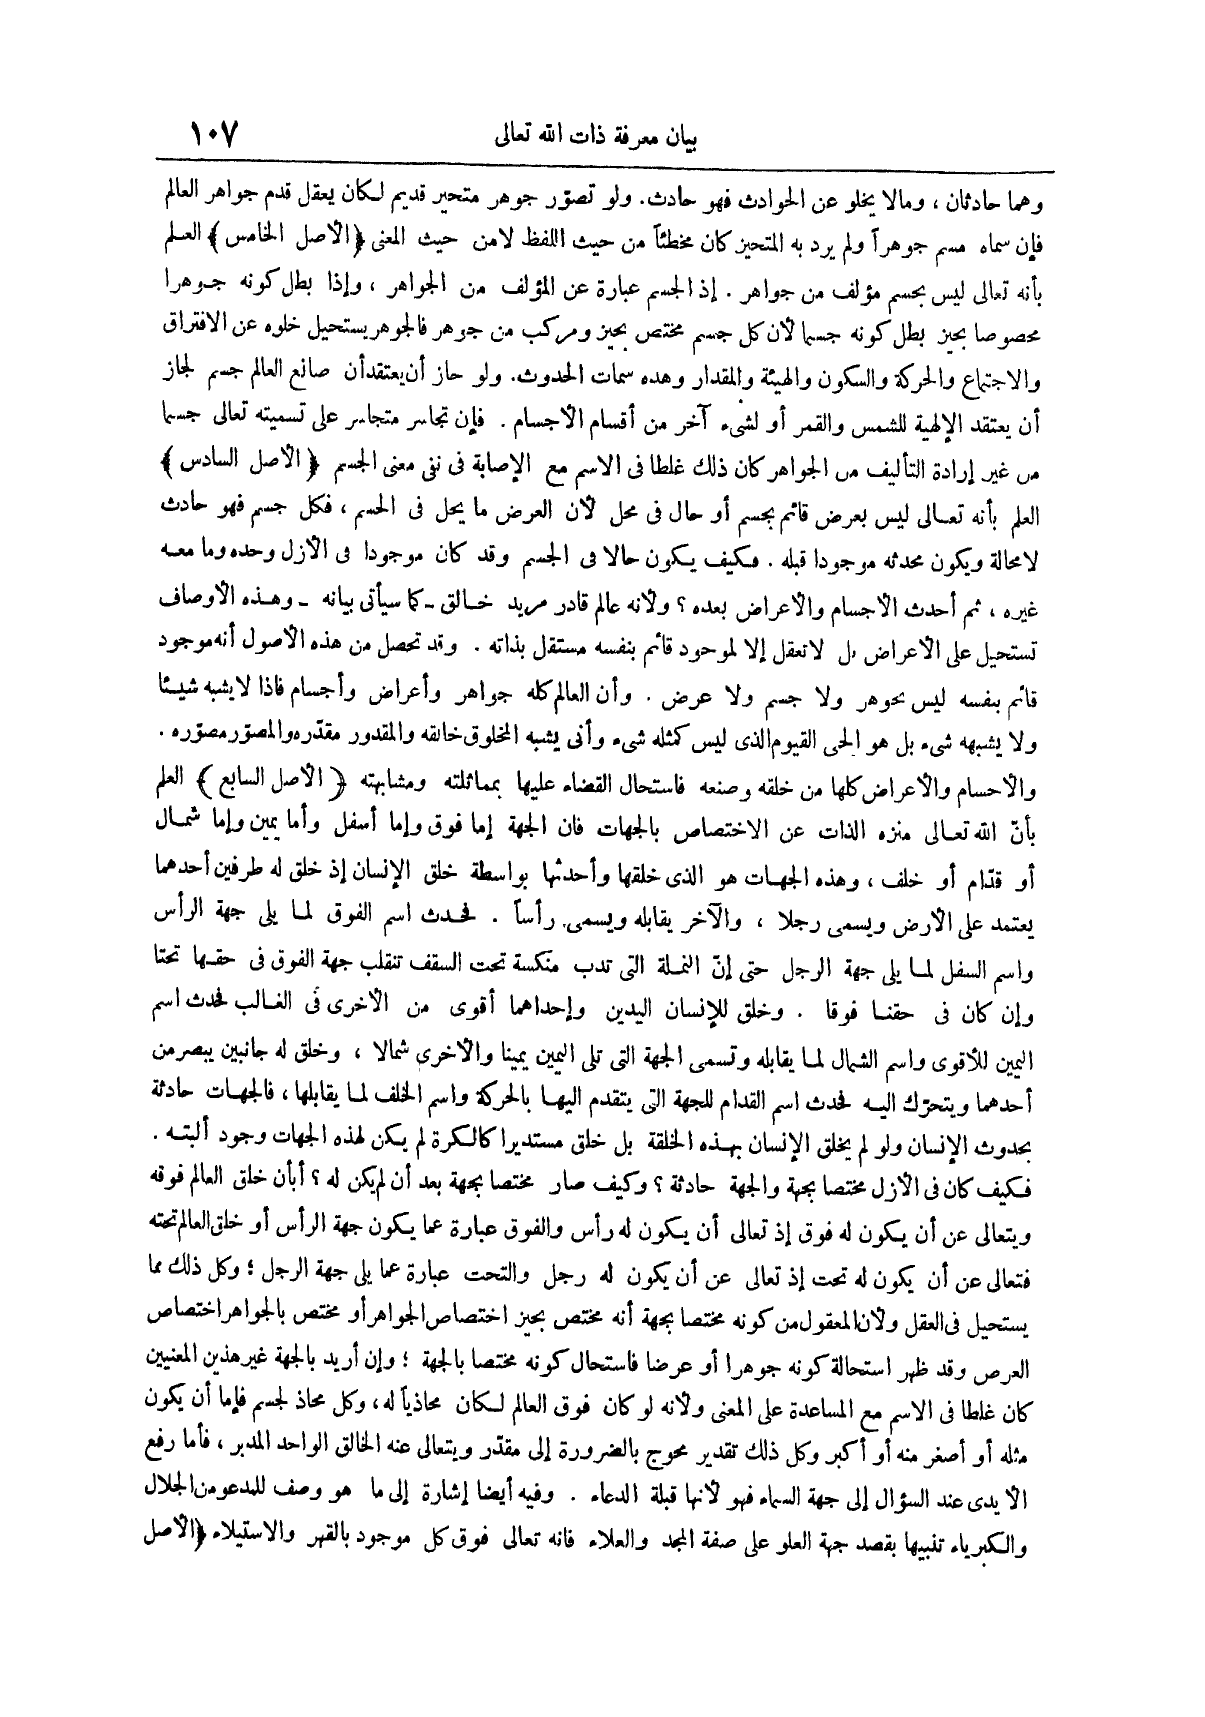 بيان معرفة ذات الله تعالى ١٠٧
وهما حادثان ، ومالا يخلو عن الحوادث فهو حادث. ولو تصوّر جوهر متحيز قديم لكان يعقل قدم جواهر العالم
فإن سماه مسم جوهراً ولم يرد به المتحيز كان مخطئاً من حيث اللفظ لامن حيث المعنى ﴿الأصل الخامس﴾ العلم
بأنه تعالى ليس بجسم مؤلف من جواهر . إذ الجسم عبارة عن المؤلف من الجواهر ، وإذا بطل كونه جوهرا
مخصوصا بحيز بطل كونه جسما لأن كل جسم مختص بحيز ومركب من جوهر فالجوهر يستحيل خلوه عن الافتراق
والاجتماع والحركة والسكون والهيئة والمقدار وهذه سمات الحدوث. ولو جاز أن يعتقد أن صانع العالم جسم لجاز
أن يعتقد الإلهية للشمس والقمر أو لشىء آخر من أقسام الأجسام . فإن تجاسر متجاسر على تسميته تعالى جسما
من غير إرادة التأليف من الجواهر كان ذلك غلطا فى الاسم مع الإصابة فى نفى معنى الجسم ﴿الأصل السادس﴾
العلم بأنه تعالى ليس بعرض قائم بجسم أو حال فى محل لأن العرض ما يحل فى الجسم ، فكل جسم فهو حادث
لامحالة ويكون محدثه موجودا قبله . فكيف يكون حالا فى الجسم وقد كان موجودا فى الأزل وحده وما معه
غيره ، ثم أحدث الأجسام والأعراض بعده ؟ ولأنه عالم قادر مريد خالق ـ كما سيأتى بيانه ـ وهذه الأوصاف
تستحيل على الأعراض بل لاتعقل إلا لموجود قائم بنفسه مستقل بذاته . وقد تحصل من هذه الأصول أنه موجود
قائم بنفسه ليس بجوهر ولا جسم ولا عرض . وأن العالم كله جواهر وأعراض وأجسام فاذا لايشبه شيئا
ولا يشبهه شىء بل هو الحى القيوم الذى ليس كمثله شىء وأنى يشبه المخلوق خالقه والمقدور مقدّره والمصوّر مصوّره .
والأجسام والأعراض كلها من خلقه وصنعه فاستحال القضاء عليها بمماثلته ومشابهته ﴿الأصل السابع﴾ العلم
بأنّ الله تعالى منزه الذات عن الاختصاص بالجهات فان الجهة إما فوق وإما أسفل وأما يمين وإما شمال
أو قدّام أو خلف ، وهذه الجهات هو الذى خلقها وأحدثها بواسطة خلق الإنسان إذ خلق له طرفين أحدهما
يعتمد على الأرض ويسمى رجلا ، والآخر يقابله ويسمى رأساً . فحدث اسم الفوق لما يلى جهة الرأس
واسم السفل لما يلى جهة الرجل حتى إنّ النملة التى تدب منكسة تحت السقف تنقلب جهة الفوق فى حقها تحتا
وإن كان فى حقنا فوقا . وخلق للإنسان اليدين وإحداهما أقوى من الأخرى فى الغالب فحدث اسم
اليمين للأقوى واسم الشمال لما يقابله وتسمى الجهة التى تلى اليمين يمينا والأخرى شمالا ، وخلق له جانبين يبصر من
أحدهما ويتحرّك اليه فحدث اسم القدام للجهة التى يتقدم اليها بالحركة واسم الخلف لما يقابلها ، فالجهات حادثة
بحدوث الإنسان ولو لم يخلق الإنسان بهذه الخلقة بل خلق مستديرا كالكرة لم يكن لهذه الجهات وجود ألبتة .
فكيف كان فى الأزل مختصا بجهة والجهة حادثة ؟ وكيف صار مختصا بجهة بعد أن لم يكن له ؟ أبأن خلق العالم فوقه
ويتعالى عن أن يكون له فوق إذ تعالى أن يكون له رأس والفوق عبارة عما يكون جهة الرأس أو خلق العالم تحته
فتعالى عن أن يكون له تحت إذ تعالى عن أن يكون له رجل والتحت عبارة عما يلى جهة الرجل ؛ وكل ذلك مما
يستحيل فى العقل ولأن المعقول من كونه مختصا بجهة أنه مختص بحيز اختصاص الجواهر أو مختص بالجواهر اختصاص
العرض وقد ظهر استحالة كونه جوهرا أو عرضا فاستحال كونه مختصا بالجهة ؛ وإن أريد بالجهة غير هذين المعنيين
كان غلطا فى الاسم مع المساعدة على المعنى ولأنه لو كان فوق العالم لكان محاذياً له ، وكل محاذ لجسم فإما أن يكون
مثله أو أصغر منه أو أكبر وكل ذلك تقدير محوج بالضرورة إلى مقدّر ويتعالى عنه الخالق الواحد المدبر ، فأما رفع
الأيدى عند السؤال إلى جهة السماء فهو لأنها قبلة الدعاء . وفيه أيضا إشارة إلى ما هو وصف للمدعو من الجلال
والكبرياء تنبيها بقصد جهة العلو على صفة المجد والعلاء فانه تعالى فوق كل موجود بالقهر والاستيلاء ﴿الأصل